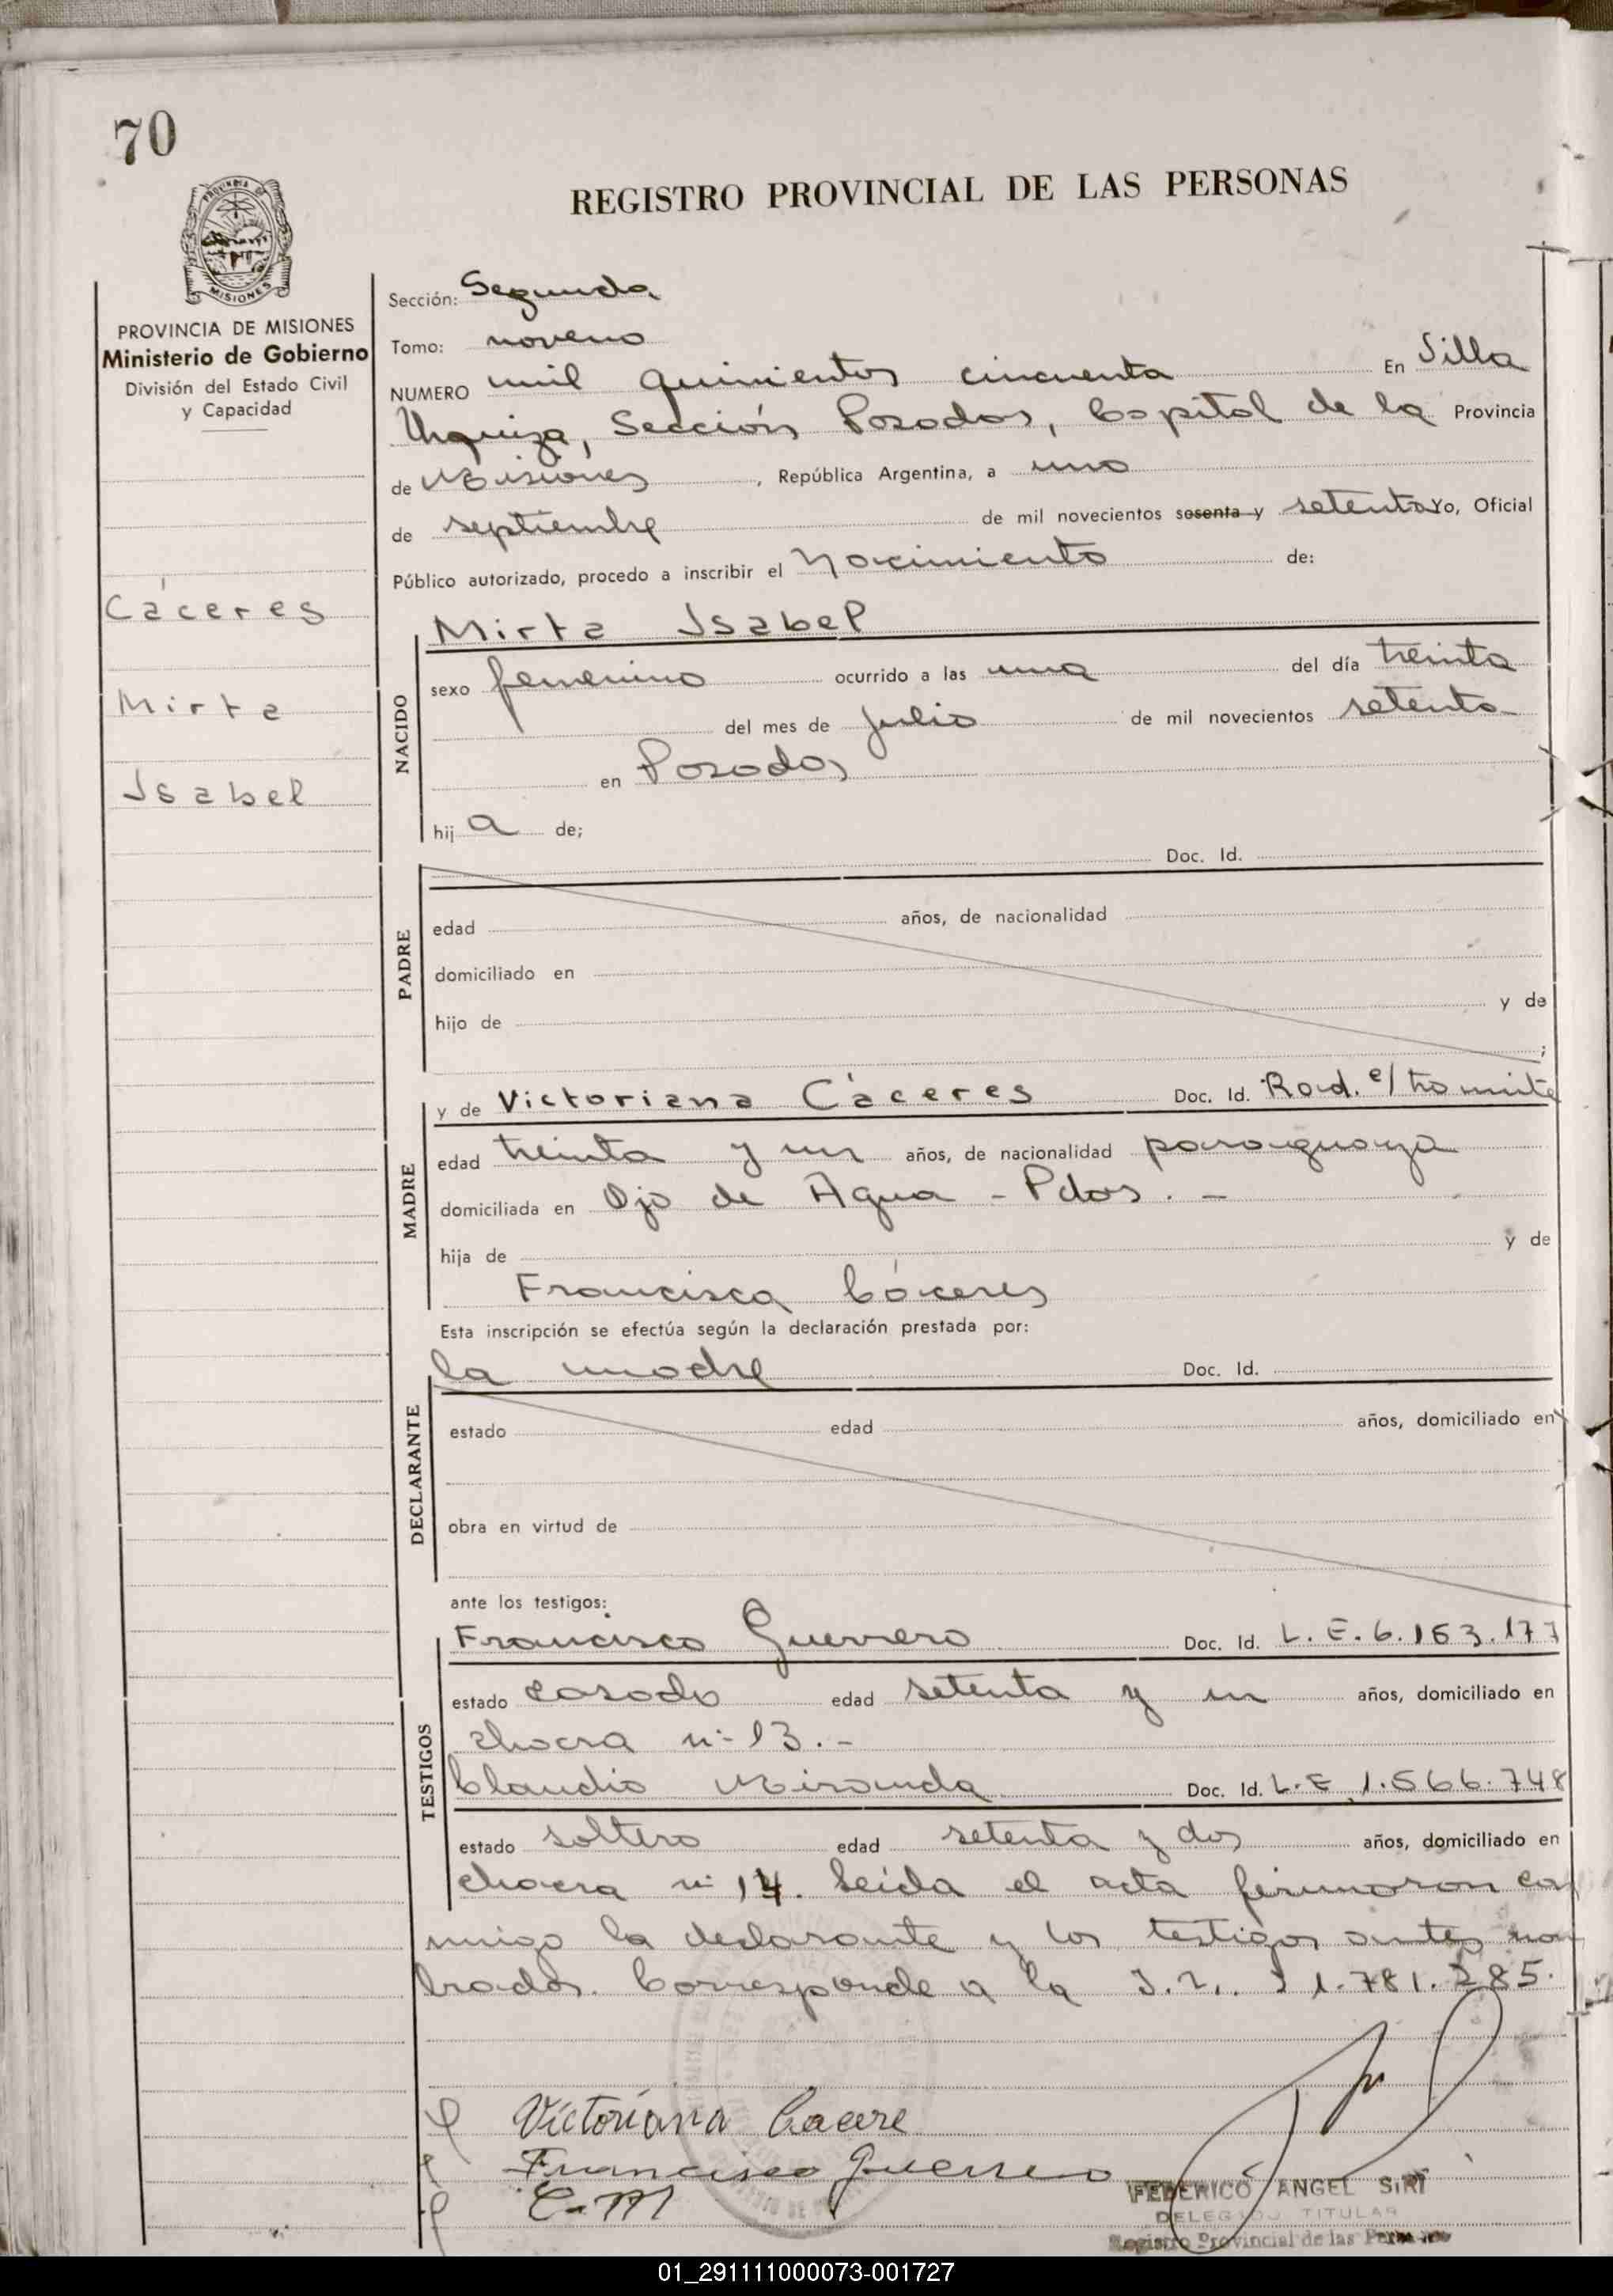 70
REGISTRO PROVINCIAL DE LAS PERSONAS
PROVINCIA DE MISIONES
PROVINCIA DE MISIONES
Ministerio de Gobierno
División del Estado Civil
y Capacidad
Cáceres
Mirta
Isabel
Sección: Segunda
Tomo: noveno
NUMERO mil quinientos cincuenta En Villa
Urquiza, Sección Posadas, Capital de la Provincia
de Misiones, República Argentina, a uno
de septiembre de mil novecientos sesenta y setenta Yo, Oficial
Público autorizado, procedo a inscribir el Nacimiento de:
NACIDO
Mirta Isabel
sexo femenino ocurrido a las una del día treinta
del mes de julio de mil novecientos setenta
en Posadas
hij a de;
PADRE
Doc. Id.
edad años, de nacionalidad
domiciliado en
hijo de y de
;
MADRE
y de Victoriana Cáceres Doc. Id. Rad. e/ tramite
edad treinta y un años, de nacionalidad paraguaya
domiciliada en Ojo de Agua - Pdas. -
hija de y de
Francisca Cáceres
Esta inscripción se efectúa según la declaración prestada por:
DECLARANTE
la madre Doc. Id.
estado edad años, domiciliado en
obra en virtud de
ante los testigos:
TESTIGOS
Francisco Guerrero Doc. Id. L. E. 6.153.177
estado casado edad setenta y un años, domiciliado en
chacra nº 13.-
Claudio Miranda Doc. Id. L. E 1.566.748
estado soltero edad setenta y dos años, domiciliado en
chacra nº 14. Leída el acta firmaron con
migo la declarante y los testigos antes nom
brados. Corresponde a la 1.781.285.
Victoriana Cacere
Francisco Guerrero
C-M
FEDERICO ANGEL SIRI
DELEGADO TITULAR
Registro Provincial de las Personas
01_291111000073-001727